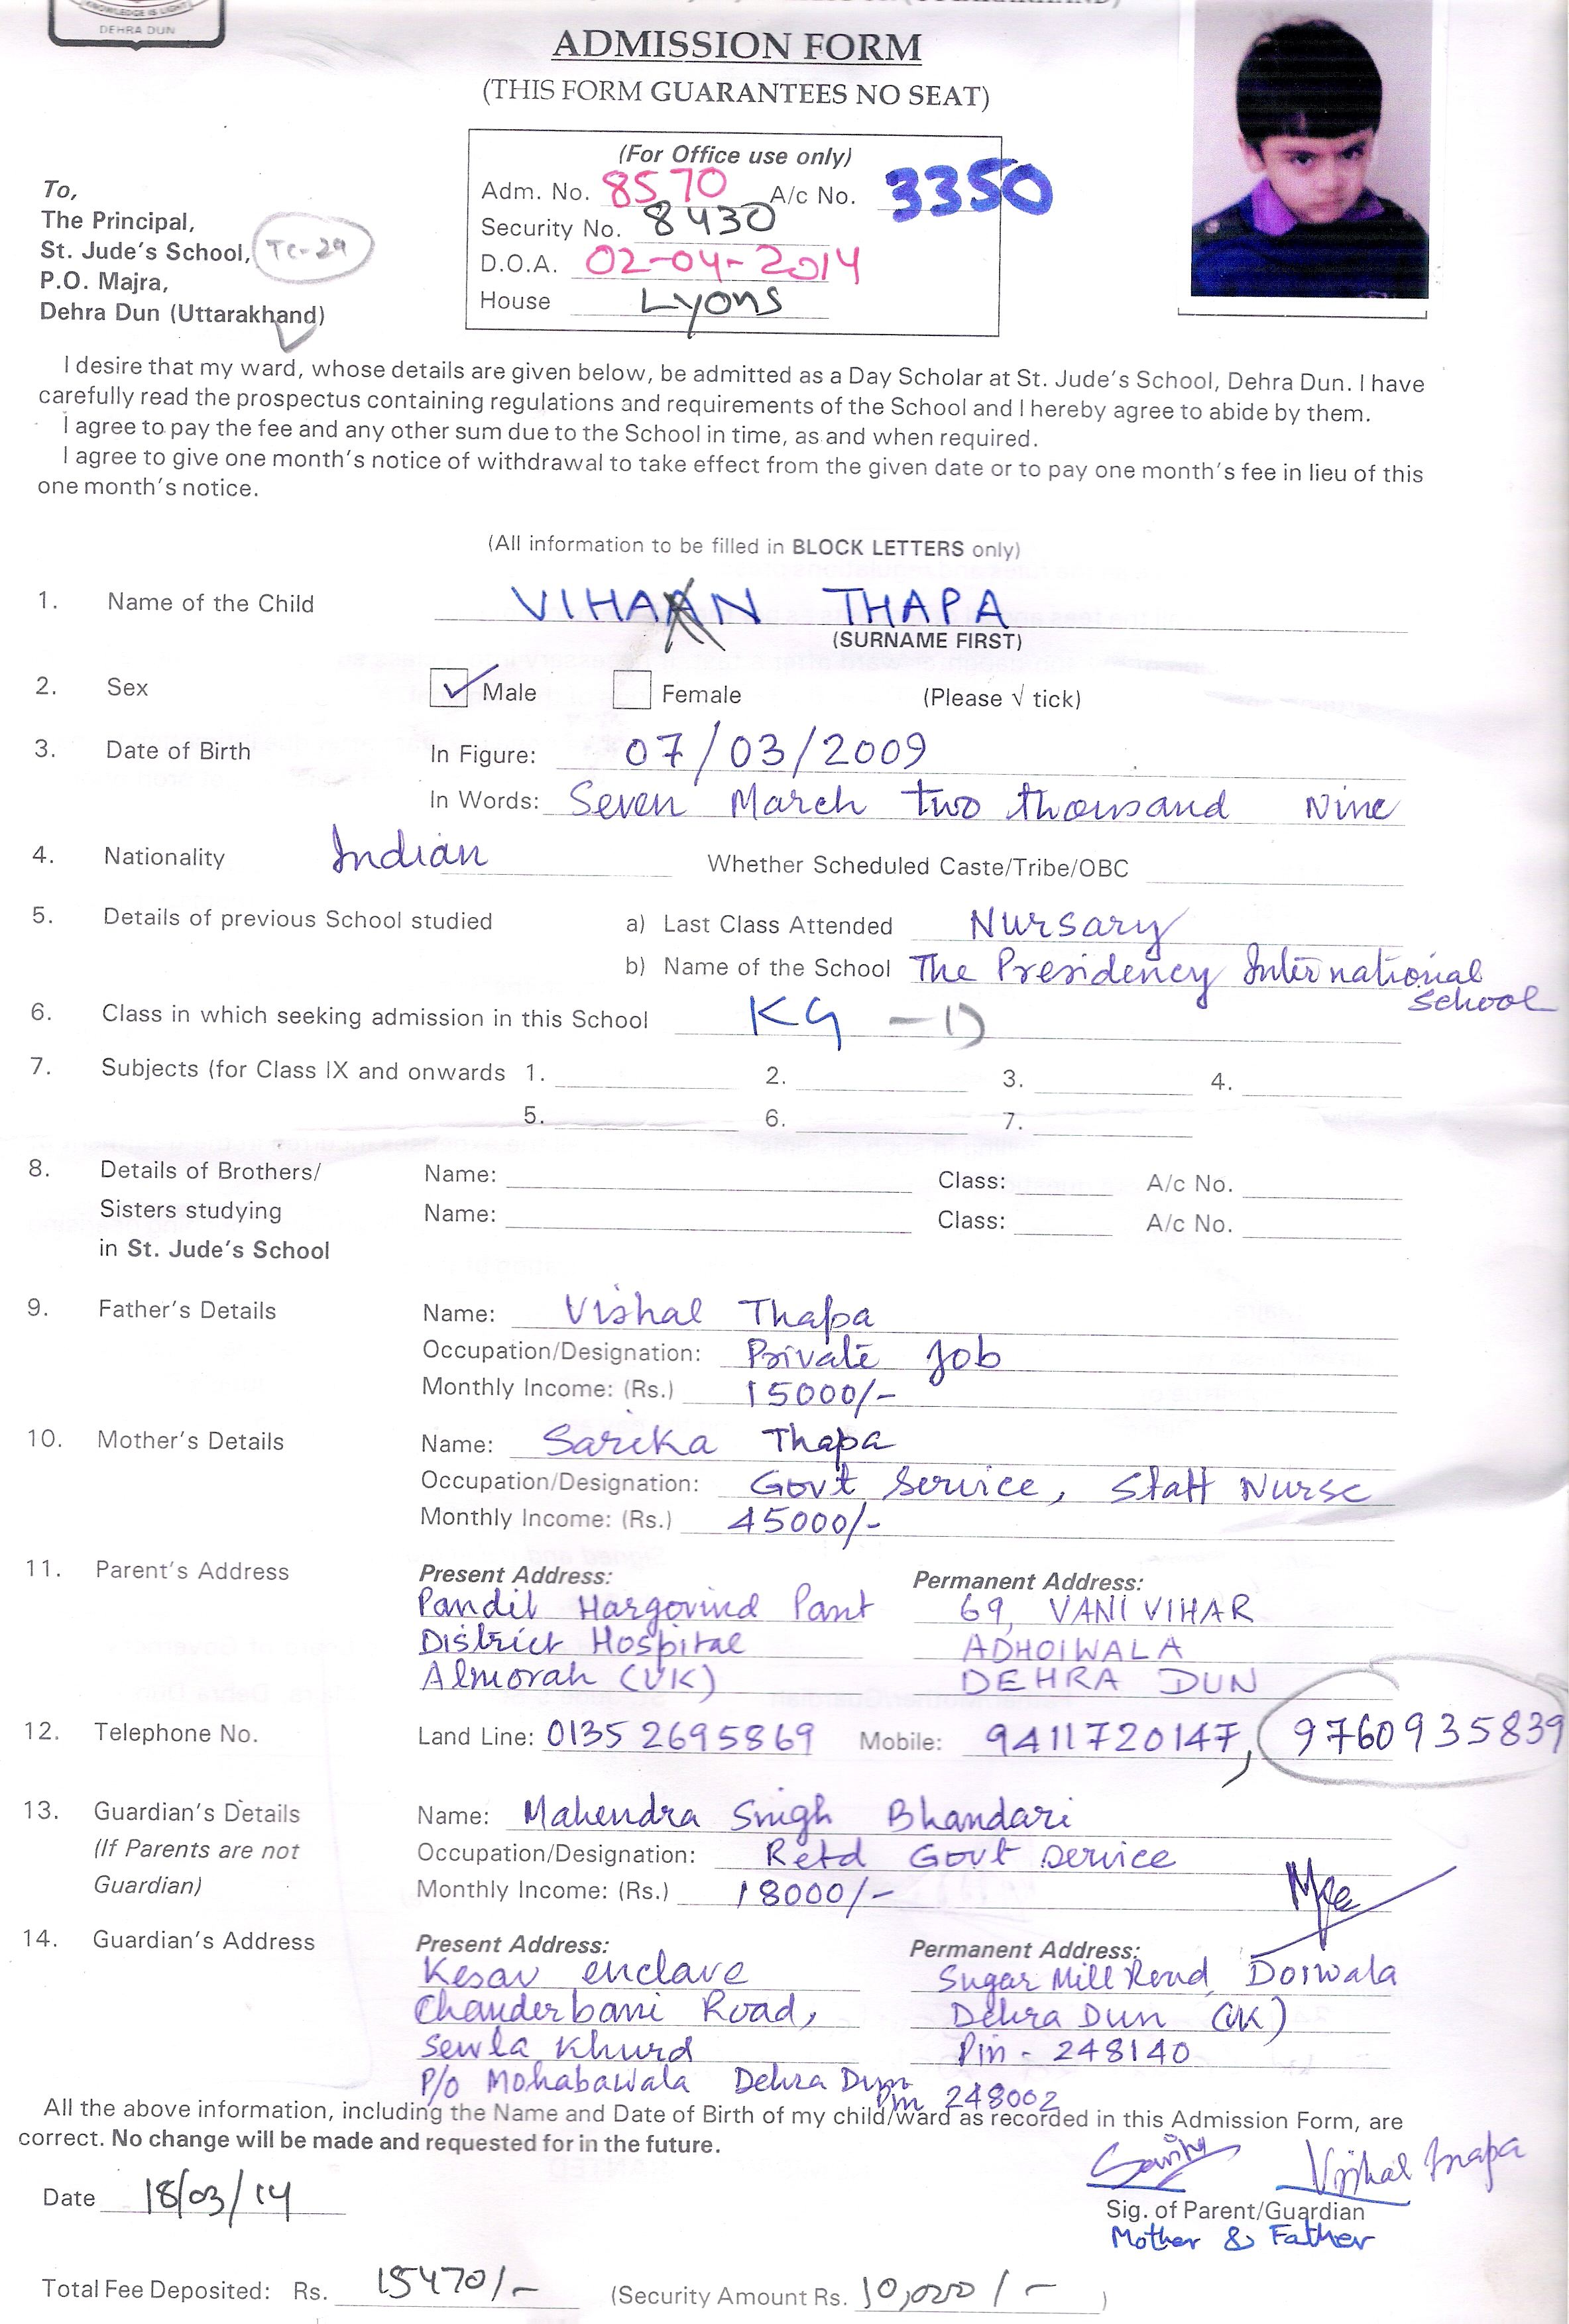 KNOWLEDGE IS LIGHT
DEHRA DUN
ADMISSION FORM
(THIS FORM GUARANTEES NO SEAT)
(For Office use only)
Adm. No. 8570 A/c No. 3350
Security No. 8430
D.O.A. 02-04-2014
House Lyons
To,
The Principal,
St. Jude's School, TC-29
P.O. Majra,
Dehra Dun (Uttarakhand)
I desire that my ward, whose details are given below, be admitted as a Day Scholar at St. Jude's School, Dehra Dun. I have
carefully read the prospectus containing regulations and requirements of the School and I hereby agree to abide by them.
I agree to pay the fee and any other sum due to the School in time, as and when required.
I agree to give one month's notice of withdrawal to take effect from the given date or to pay one month's fee in lieu of this
one month's notice.
(All information to be filled in BLOCK LETTERS only)
1. Name of the Child VIHAAN THAPA
(SURNAME FIRST)
2. Sex ✓ Male Female (Please √ tick)
3. Date of Birth In Figure: 07/03/2009
In Words: Seven March two thousand Nine
4. Nationality Indian Whether Scheduled Caste/Tribe/OBC
5. Details of previous School studied a) Last Class Attended Nursary
b) Name of the School The Presidency International
School
6. Class in which seeking admission in this School KG - D
7. Subjects (for Class IX and onwards 1. 2. 3. 4.
5. 6. 7.
8. Details of Brothers/ Name: Class: A/c No.
Sisters studying Name: Class: A/c No.
in St. Jude's School
9. Father's Details Name: Vishal Thapa
Occupation/Designation: Private Job
Monthly Income: (Rs.) 15000/-
10. Mother's Details Name: Sarika Thapa
Occupation/Designation: Govt Service, Staff Nurse
Monthly Income: (Rs.) 45000/-
11. Parent's Address Present Address: Permanent Address:
Pandit Hargovind Pant 69, VANI VIHAR
District Hospital ADHOIWALA
Almorah (UK) DEHRA DUN
12. Telephone No. Land Line: 0135 2695869 Mobile: 9411720147, 9760935839
13. Guardian's Details Name: Mahendra Singh Bhandari
(If Parents are not Occupation/Designation: Retd Govt Service
Guardian) Monthly Income: (Rs.) 18000/-
14. Guardian's Address Present Address: Permanent Address:
Kesav enclave Sugar Mill Road, Doiwala
Chanderbani Road, Dehra Dun (UK)
Sewla Khurd Pin - 248140
P/o Mohabawala Dehra Dun
Pin 248002
All the above information, including the Name and Date of Birth of my child/ward as recorded in this Admission Form, are
correct. No change will be made and requested for in the future.
Vishal Thapa
Date 18/03/14
Sig. of Parent/Guardian
Mother & Father
Total Fee Deposited: Rs. 15470/- (Security Amount Rs. 10,000/- )